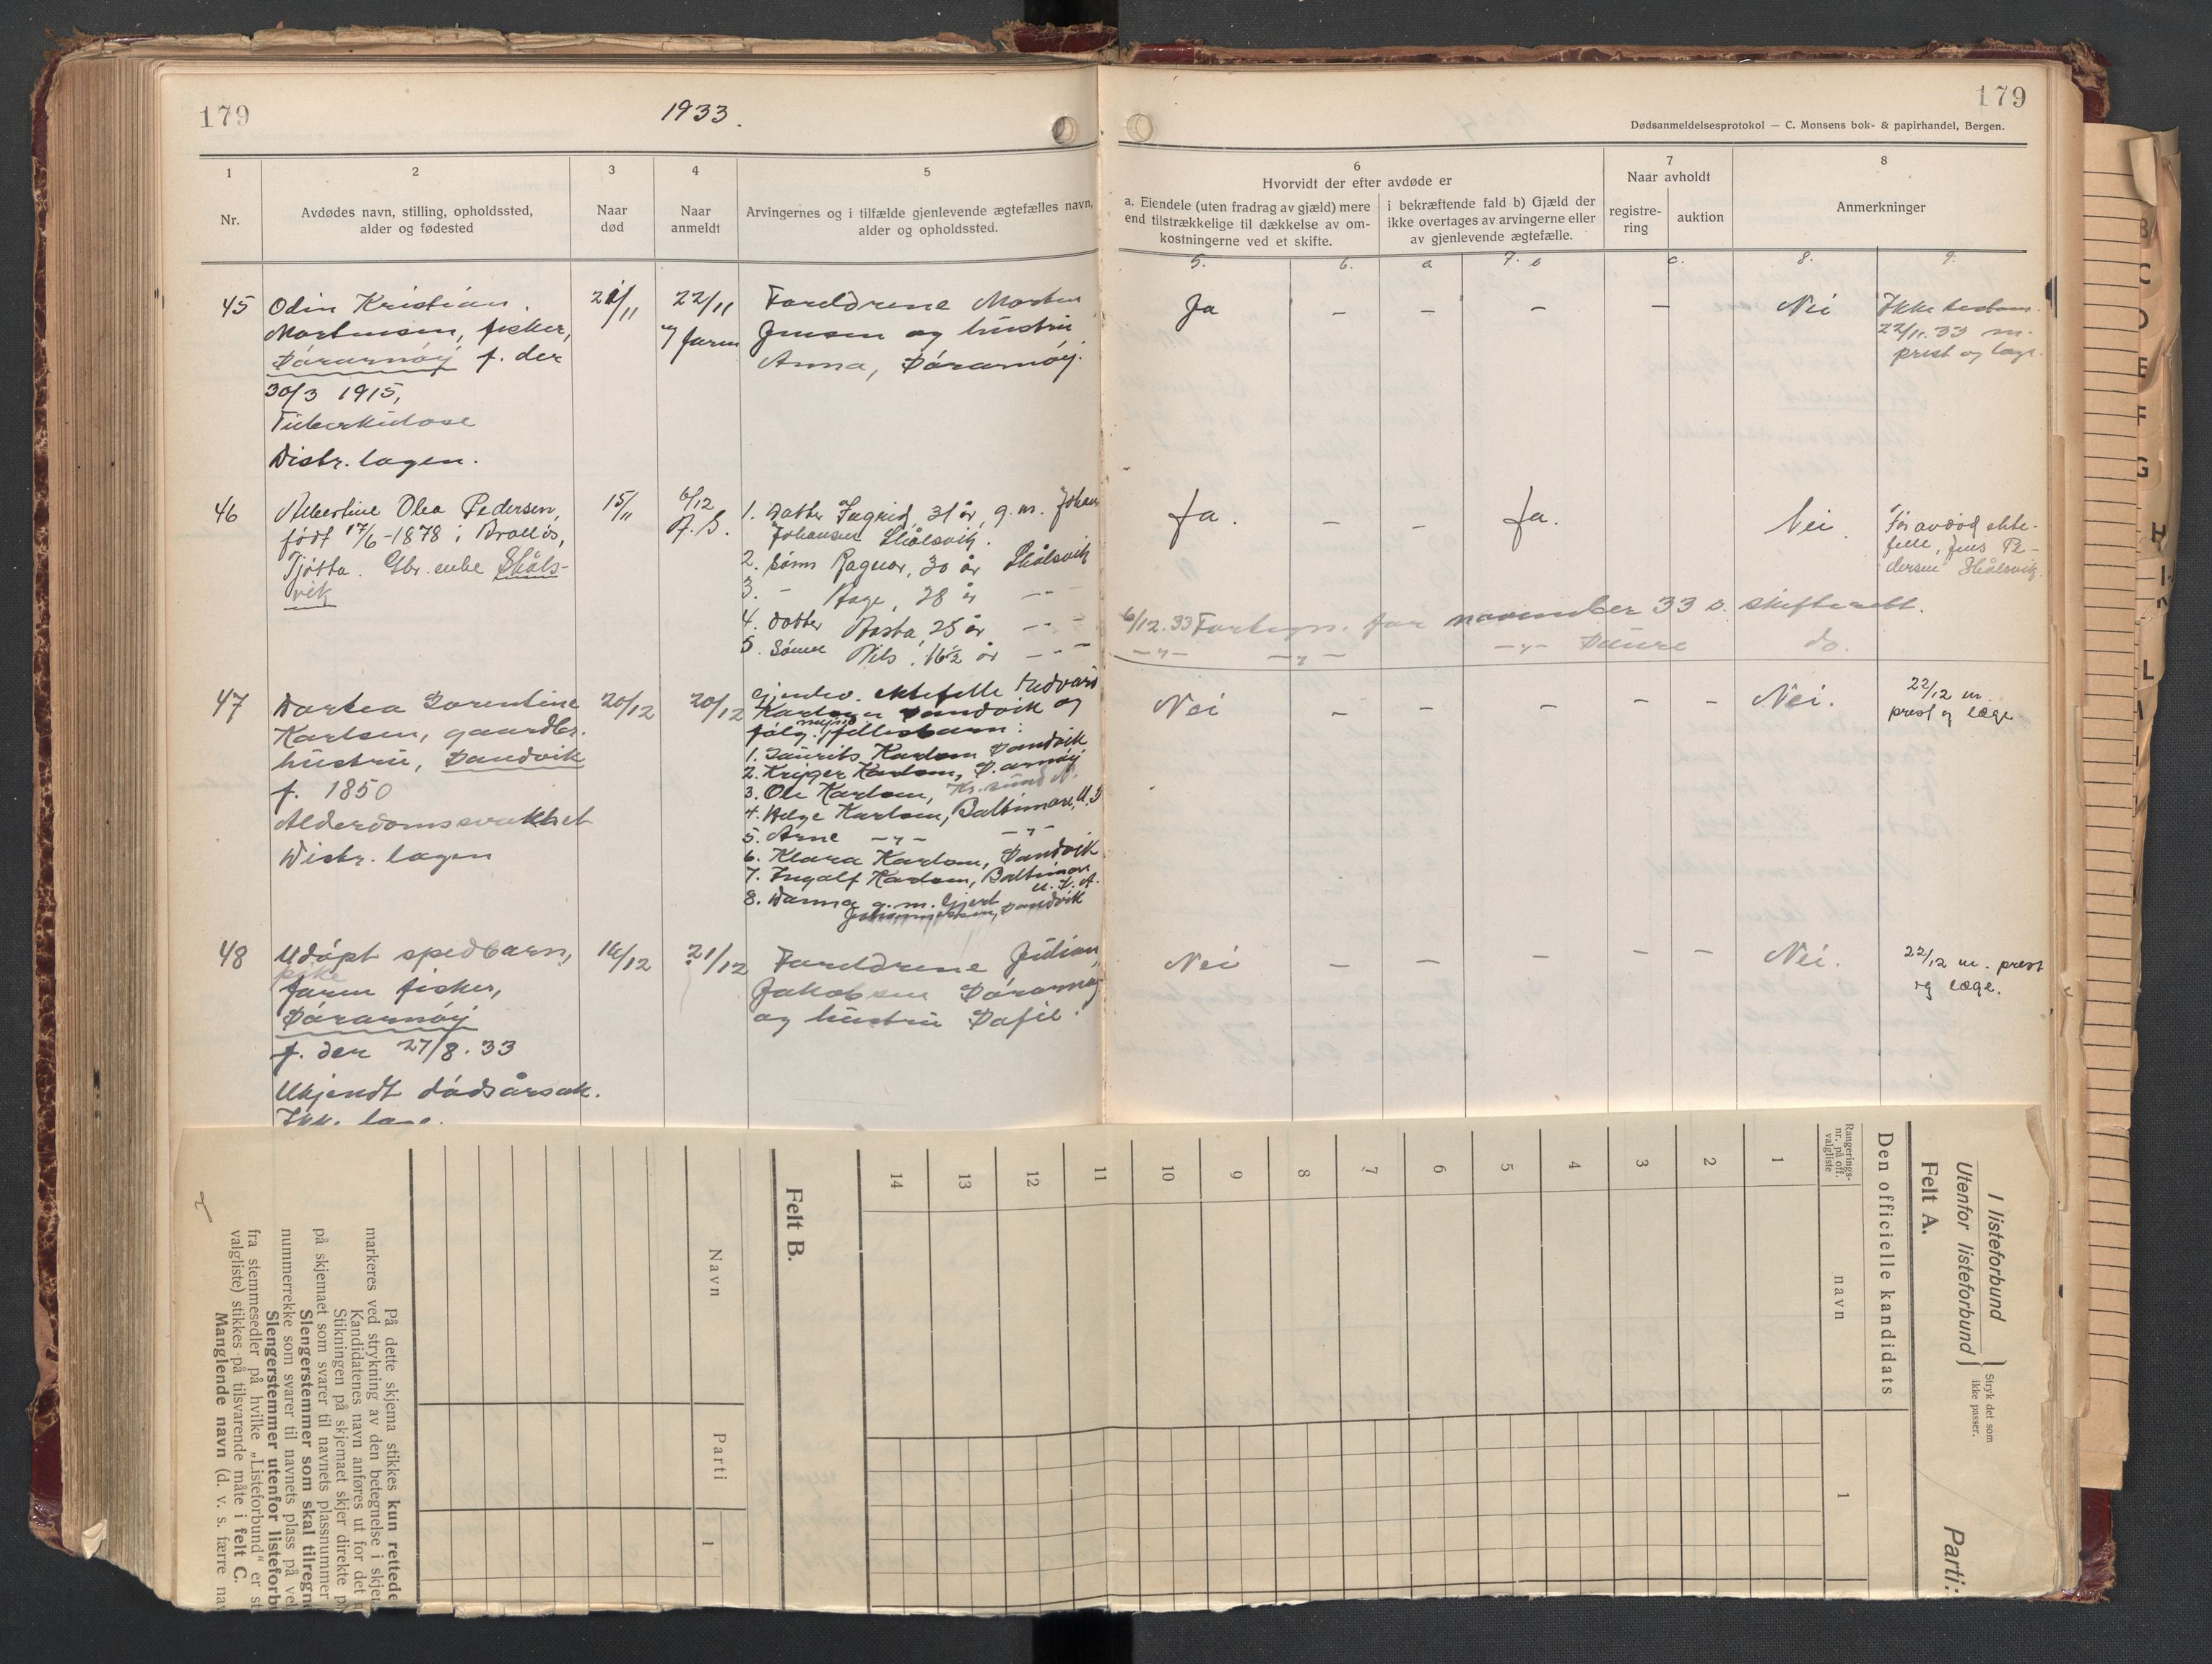 179
1933.
179
Dødsanmeldelsesprotokol — C. Monsens bok- & papirhandel, Bergen.
1
2
3
4
5
6
7
8
Nr.
Avdødes navn, stilling, opholdssted,
alder og fødested
Naar
død
Naar
anmeldt
Arvingernes og i tilfælde gjenlevende ægtefælles navn,
alder og opholdssted.
Hvorvidt der efter avdøde er
a. Eiendele (uten fradrag av gjæld) mere
end tilstrækkelige til dækkelse av om-
kostningerne ved et skifte.
i bekræftende fald b) Gjæld der
ikke overtages av arvingerne eller
av gjenlevende ægtefælle.
Naar avholdt
registre-
ring
auktion
Anmerkninger
5.
6.
a
7. b
c.
8.
9.
45
Odin Kristian
Mortensen, fisker,
f. der
30/3 1915,
Tuberkulose
Distr. lagen.
21/11
22/11
Foreldrene Morten
Jensen og hustru
Anna,
Ja
–
–
–
–
Nei
Ikke
22/11. 33 m.
prest og læge.
46
Albertine Olea Pedersen,
født 17/6-1878 i
Tjøtta. Gbr. enke Skåls-
vik
15/11
6/12
1. Datter Ingrid, 31 år, g. m. Johan
Johansen Skålsvik.
2. Sønn Ragnar, 30 år Skålsvik
3. – Aage, 28 år – –
4. Datter Asta, 25 år – –
5. Sønn Nils, 16½ år – –
Ja.
–
–
Ja.
Nei.
Før avdød ekte-
felle, Jens Pe-
dersen Skålsvik.
6/12. 33 Fortegn. for november 33 s. skifterett.
–"– –"– –"– do.
47
Dortea Lorentine
Karlsen, gaardbr.
hustru, Sandvik
f. 1850
Alderdomssvakhet
Distr. lagen
20/12
20/12
Gjenlev. ektefelle Edvard
Karlsen Sandvik og
følg. myndige fellesbarn:
1. Laurits Karlsen Sandvik
2. Krøger Karlsen,
3. Ole Karlsen, Kr.sund N.
4. Helge Karlsen, Baltimore, U.S
5. Arne –"– –"–
6. Klara Karlsen, Sandvik
7. Ingolf Karlsen, Baltimore
U.S.A.
8. Danna g. m. Gjert
Johannessen, Sandvik
Nei
–
–
–
–
–
Nei.
22/12 m.
prest og læge
48
Udøpt spedbarn,
pike
faren fisker,
f. der 27/8. 33
Ukjendt dødsårsak.
Ikk. læge.
16/12
21/12
Foreldrene Julian
Jakobsen
og hustru
Nei
–
–
–
–
–
Nei.
22/12 m. prest
og læge.
I listeforbund
Utenfor listeforbund
Stryk det som
ikke passer.
Parti:
Felt A.
Den officielle kandidats
Rangerings-
nr. på off.
valgliste
navn
1
1
2
3
4
5
6
7
8
9
10
11
12
13
14
Felt B.
Navn
Parti
1
På dette skjema stikkes kun rettede
markeres ved strykning av den betegnelse i skje
Kandidatenes navn anføres ut for det
Stikningen på skjemaet skjer direkte p
på skjemaet som svarer til navnets plassnummer
Slengerstemmer som skal tilregne
nummerrekke som svarer til navnets plass på vel
Slengerstemmer utenfor listeforb
fra stemmesedler på hvilke „Listeforbund“ er st
valgliste) stikkes på tilsvarende måte i felt C.
Manglende navn (d. v. s. færre nav
B
C
D
E
F
G
H
L